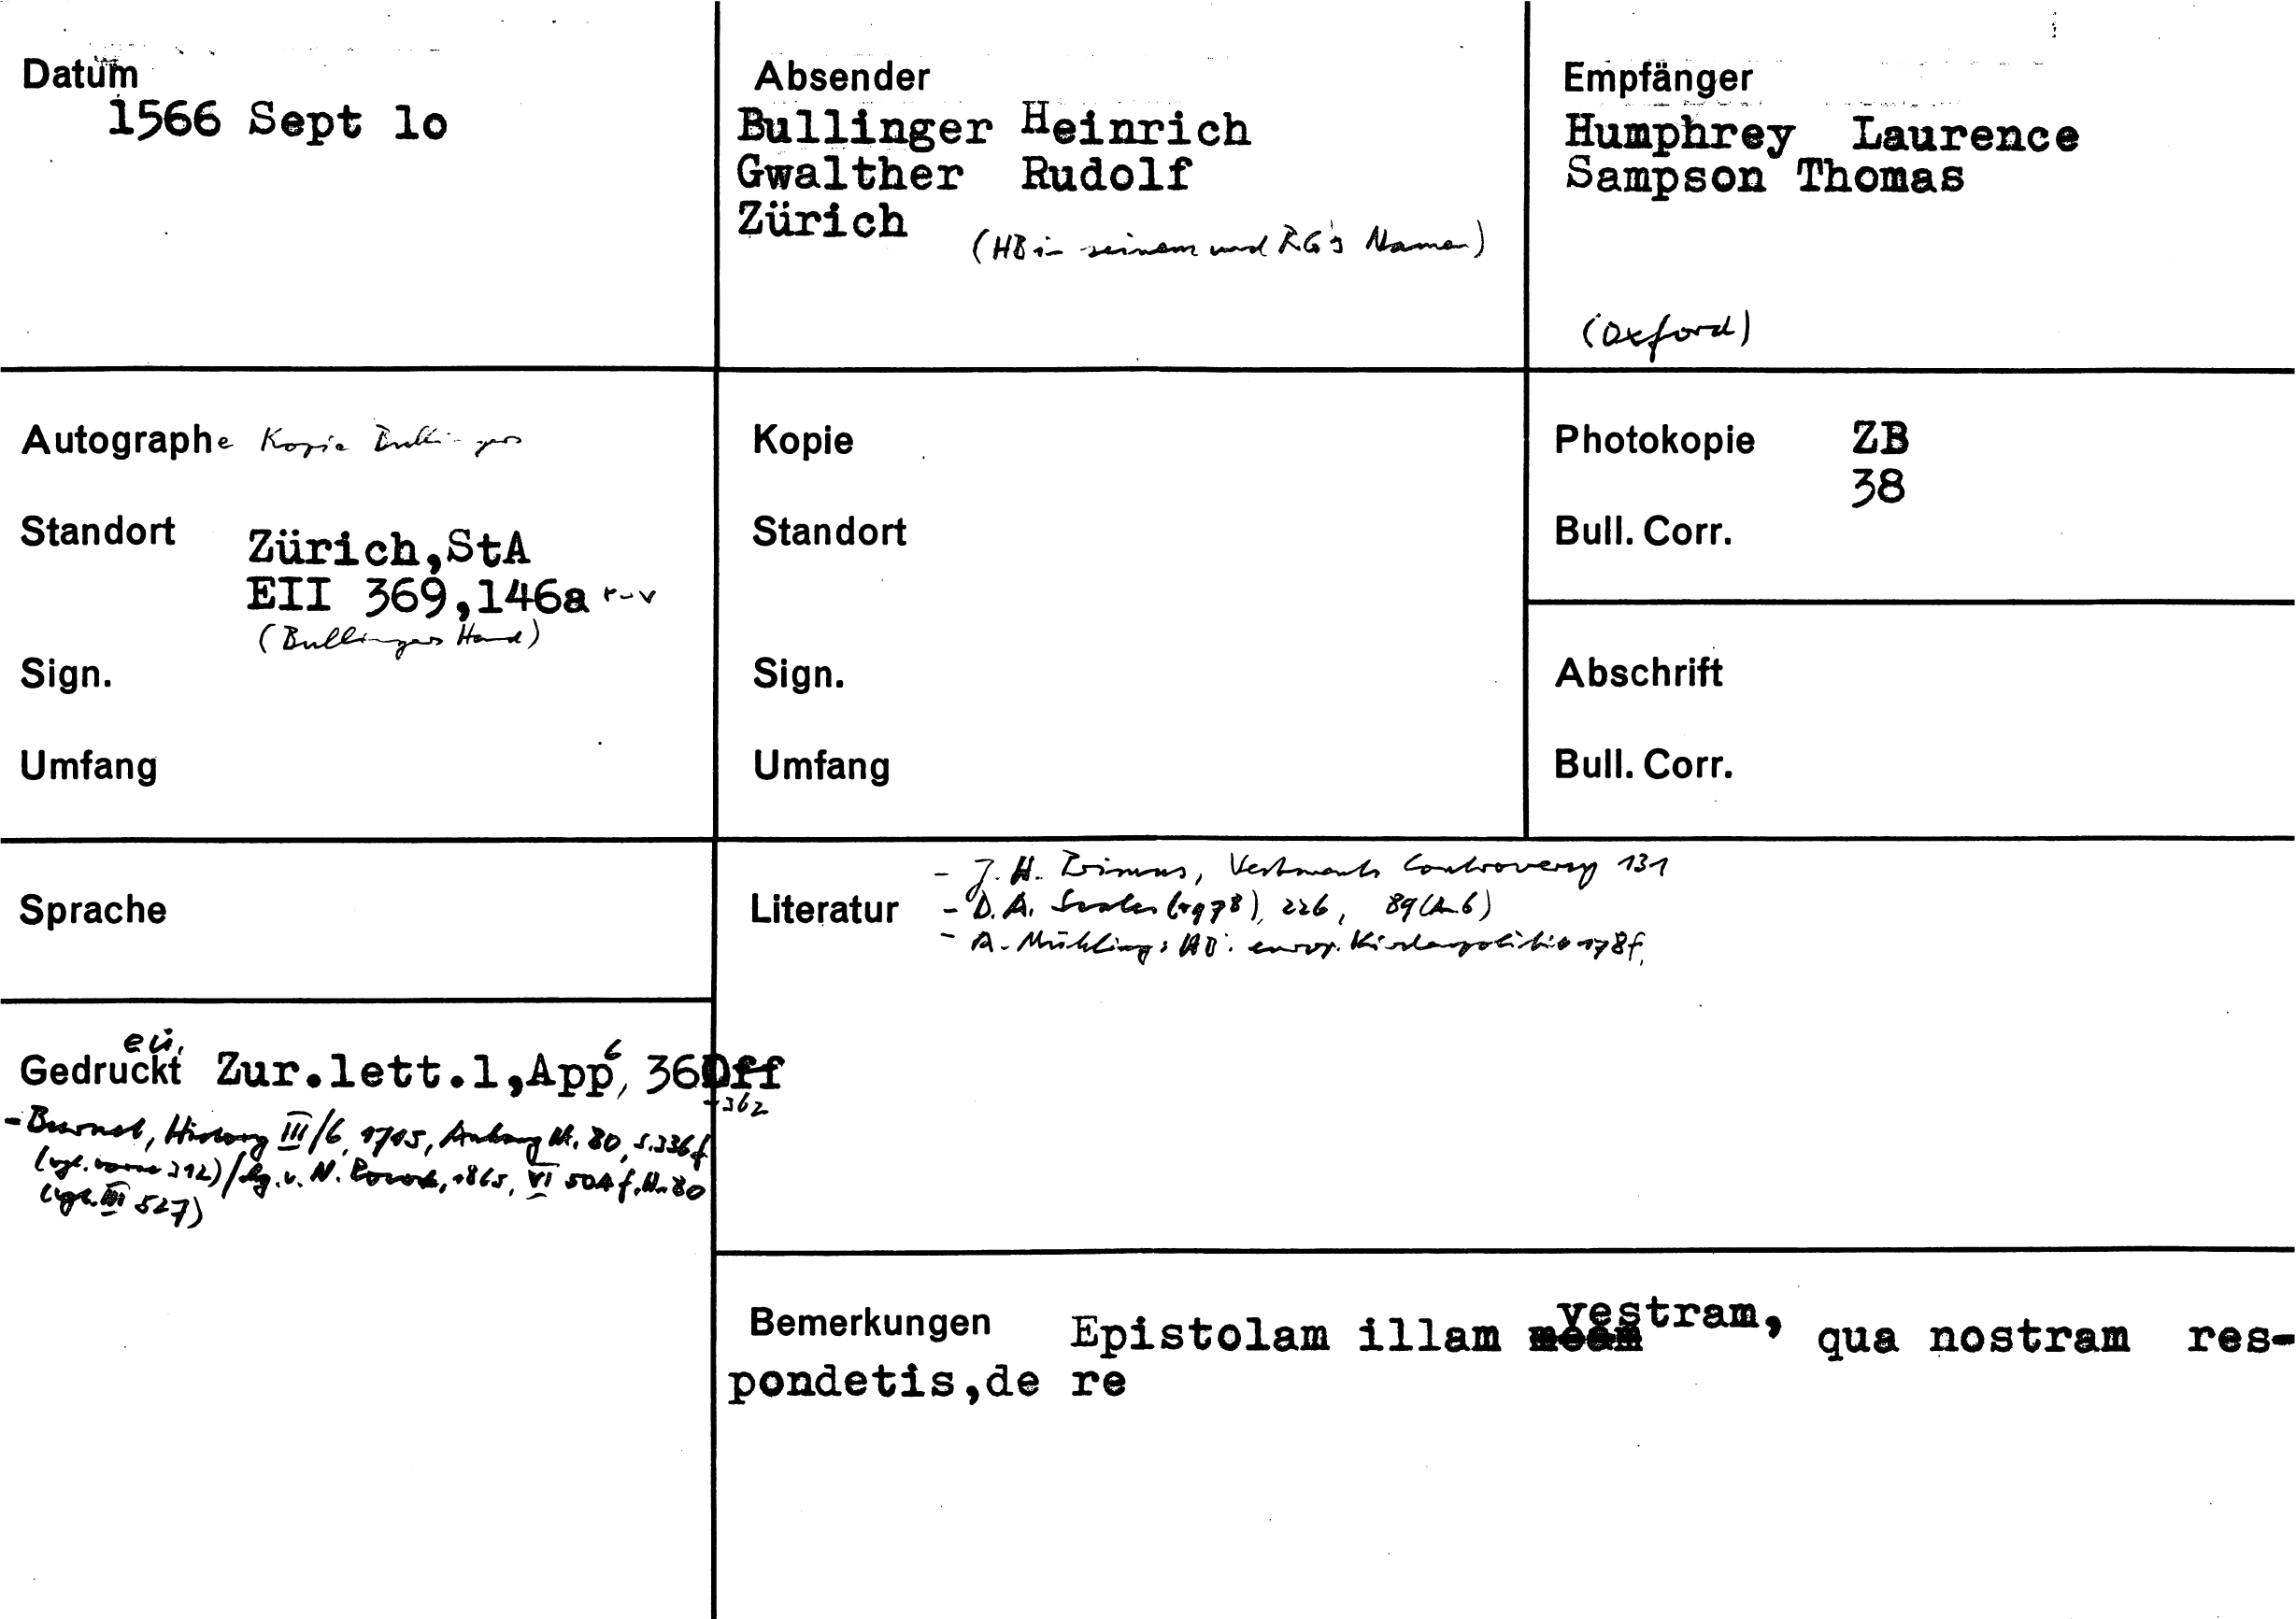 Datum
1566 Sept 1o
Absender
Bullinger Heinrich
Gwalther Rudolf
Zürich
(HB in seinem und RG's Namen)
Empfänger
Humphrey Laurence
Sampson Thomas
(Oxford)
Autographe Kopie Bullingers
Standort
Zürich,StA
EII 369,146a r-v
(Bullingers Hand)
Sign.
Umfang
Kopie
Standort
Sign.
Umfang
Photokopie ZB
38
Bull. Corr.
Abschrift
Bull. Corr.
Sprache
Literatur
- J. H. Primus, Vestments Controversy 131
- D. A. 226, 89
- A. Mühling: HB. europ. Kirchenpolitik 178f.
Gedruckt Zur.lett.1,App 6, 360ff
-362
- Burnet, History III/6, 1715, Anhang Nr. 80, S. 336f
(vgl. vorne 312)/hg. v. N. Pocock, 1865, VI 504f. Nr. 80
(vgl. III 527)
Bemerkungen Epistolam illam meam vestram, qua nostram res-
pondetis,de re